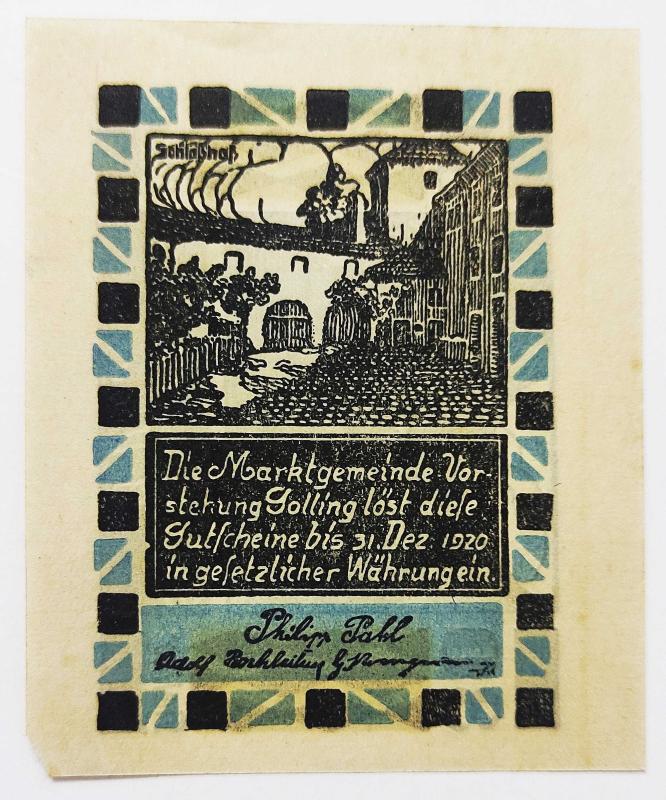 Schloßhof
Die Marktgemeinde Vor-
stehung Golling löst dieſe
Gutſcheine bis 31. Dez. 1920
in geſetzlicher Währung ein.
Philipp Pahl
Adolf